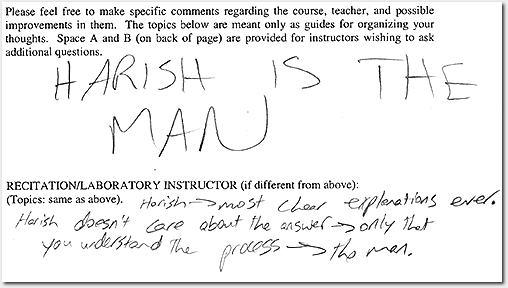 Please feel free to make specific comments regarding the course, teacher, and possible
improvements in them. The topics below are meant only as guides for organizing your
thoughts. Space A and B (on back of page) are provided for instructors wishing to ask
additional questions.
HARISH IS THE
MAN
RECITATION/LABORATORY INSTRUCTOR (if different from above):
(Topics: same as above). Harish → most clear explanations ever.
Harish doesn't care about the answer → only that
you understand the process → the man.